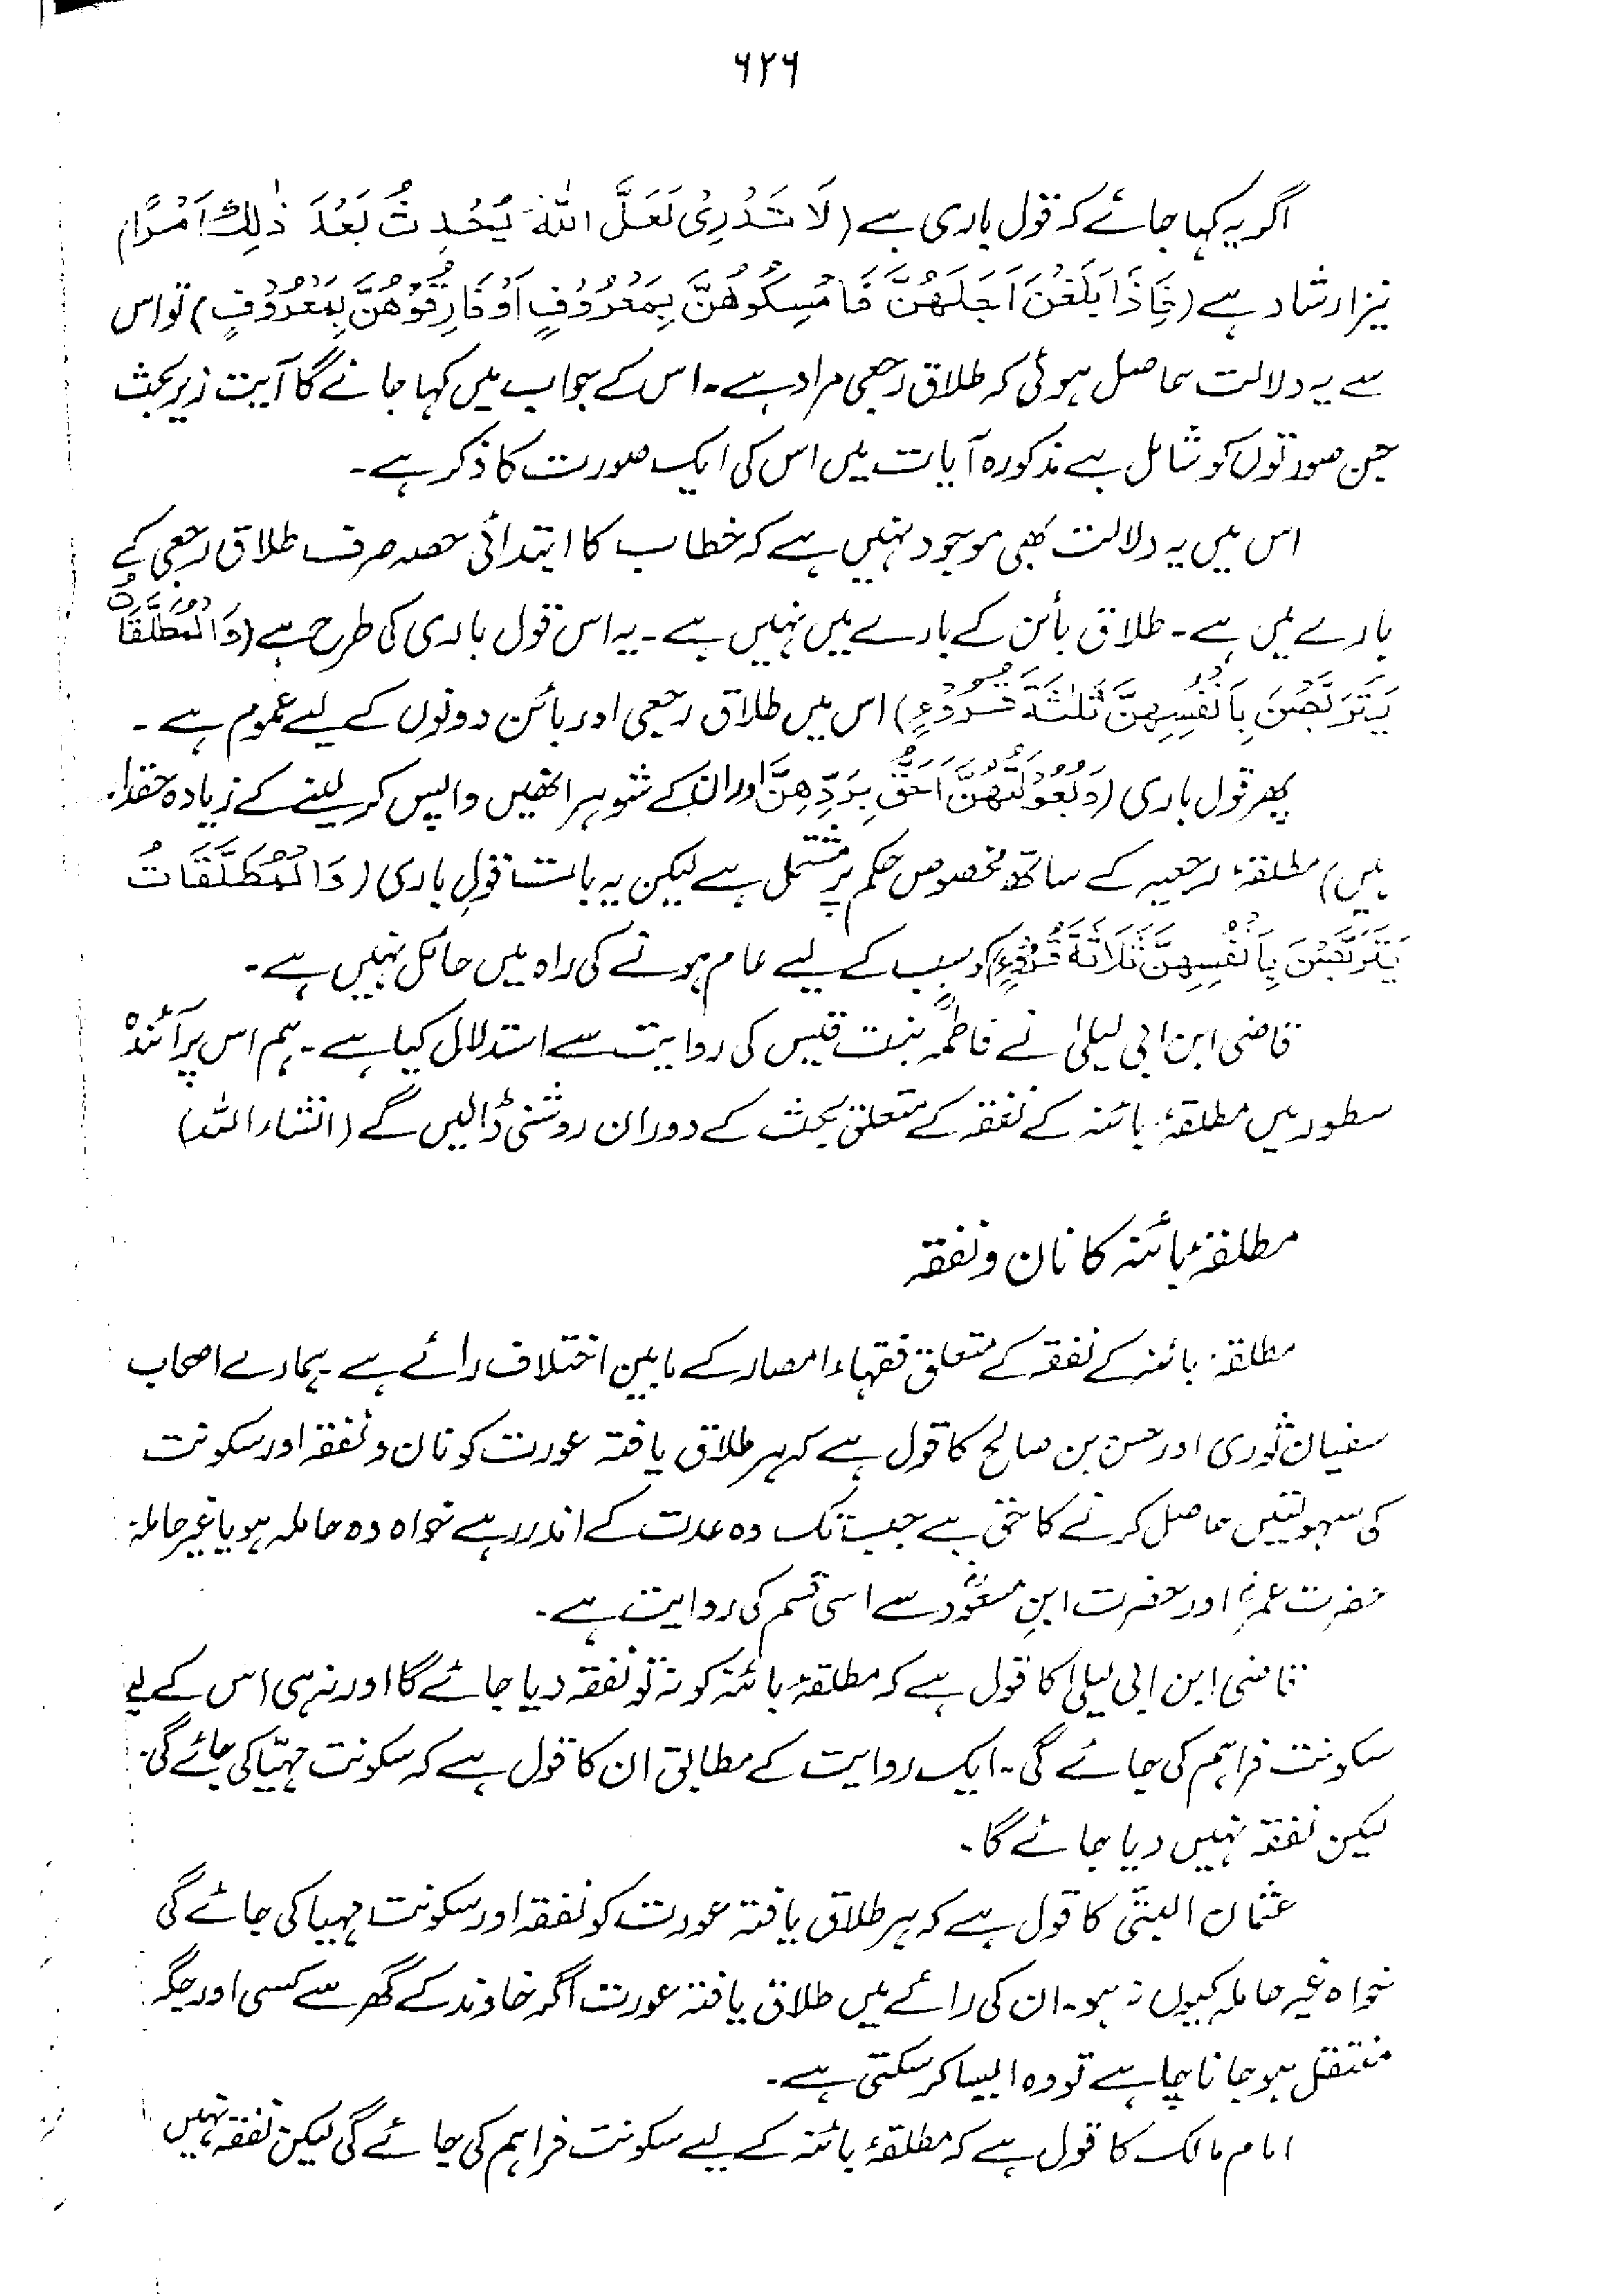 ۶۲۶
اگر یہ کہا جائے کہ قول باری ہے (لَا تَدْرِیْ لَعَلَّ اللّٰهَ یُحْدِثُ بَعْدَ ذٰلِكَ اَمْرًا)
نیز ارشاد ہے (فَاِذَا بَلَغْنَ اَجَلَهُنَّ فَاَمْسِكُوْهُنَّ بِمَعْرُوْفٍ اَوْ فَارِقُوْهُنَّ بِمَعْرُوْفٍ) تو اس
سے یہ دلالت حاصل ہوئی کہ طلاق رجعی مراد ہے۔ اس کے جواب میں کہا جائے گا آیت زیر بحث
جن صورتوں کو شامل ہے مذکورہ آیات میں اس کی ایک صورت کا ذکر ہے۔
اس میں یہ دلالت بھی موجود نہیں ہے کہ خطاب کا ابتدائی حصہ صرف طلاق رجعی کے
بارے میں ہے۔ طلاق بائن کے بارے میں نہیں ہے۔ یہ اس قول باری کی طرح ہے (وَالْمُطَلَّقَاتُ
یَتَرَبَّصْنَ بِاَنْفُسِهِنَّ ثَلٰثَةَ قُرُوْءٍ) اس میں طلاق رجعی اور بائن دونوں کے لیے عموم ہے۔
پھر قول باری (وَبُعُوْلَتُهُنَّ اَحَقُّ بِرَدِّهِنَّ اور ان کے شوہر انھیں واپس کر لینے کے زیادہ حقدار
ہیں) مطلقۂ رجعیہ کے ساتھ مخصوص حکم پر مشتمل ہے لیکن یہ بات قولِ باری (وَالْمُطَلَّقَاتُ
یَتَرَبَّصْنَ بِاَنْفُسِهِنَّ ثَلَاثَةَ قُرُوْءٍ) کو سب کے لیے عام ہونے کی راہ میں حائل نہیں ہے۔
قاضی ابن ابی لیلیٰ نے فاطمہؓ بنت قیس کی روایت سے استدلال کیا ہے۔ ہم اس پر آئندہ
سطور میں مطلقۂ بائنہ کے نفقہ کے متعلق بحث کے دوران روشنی ڈالیں گے (انشاء اللہ)
مطلقۂ بائنہ کا نان و نفقہ
مطلقۂ بائنہ کے نفقہ کے متعلق فقہاء امصار کے مابین اختلاف رائے ہے۔ ہمارے اصحاب
سفیان ثوری اور حسن بن صالح کا قول ہے کہ ہر طلاق یافتہ عورت کو نان و نفقہ اور سکونت
کی سہولتیں حاصل کرنے کا حق ہے جب تک وہ عدت کے اندر رہے خواہ وہ حاملہ ہو یا غیر حاملہ۔
حضرت عمرؓ اور حضرت ابنِ مسعودؓ سے اسی قسم کی روایت ہے۔
قاضی ابن ابی لیلیٰ کا قول ہے کہ مطلقۂ بائنہ کو نہ تو نفقہ دیا جائے گا اور نہ ہی اس کے لیے
سکونت فراہم کی جائے گی۔ ایک روایت کے مطابق ان کا قول ہے کہ سکونت مہیّا کی جائے گی۔
لیکن نفقہ نہیں دیا جائے گا۔
عثمان البتّی کا قول ہے کہ ہر طلاق یافتہ عورت کو نفقہ اور سکونت مہیا کی جائے گی
خواہ غیر حاملہ کیوں نہ ہو۔ ان کی رائے میں طلاق یافتہ عورت اگر خاوند کے گھر سے کسی اور جگہ
منتقل ہو جانا چاہے تو وہ ایسا کر سکتی ہے۔
امام مالک کا قول ہے کہ مطلقۂ بائنہ کے لیے سکونت فراہم کی جائے گی لیکن نفقہ نہیں